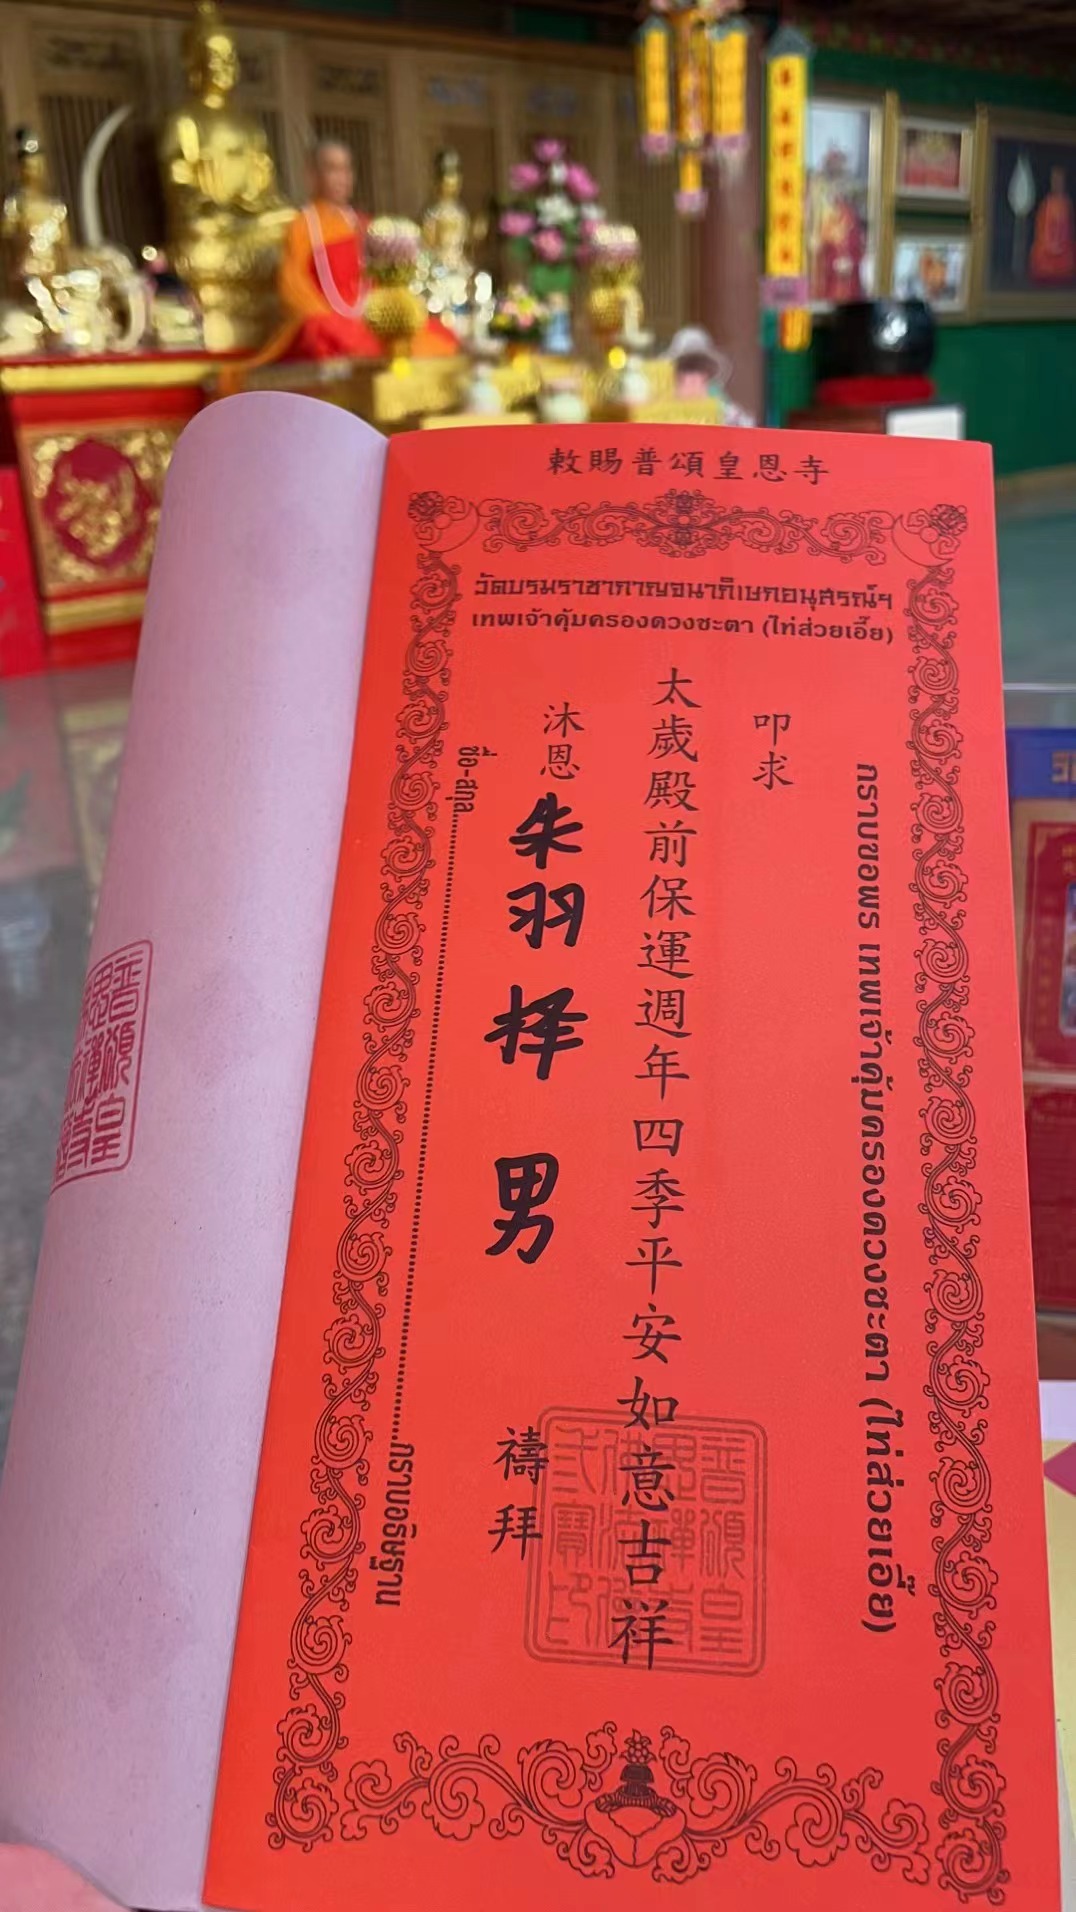 敕賜普頌皇恩寺
วัดบรมราชากาญจนาภิเษกอนุสรณ์ฯ
เทพเจ้าคุ้มครองดวงชะตา (ไท่ส่วยเอี๊ย)
กราบขอพร เทพเจ้าคุ้มครองดวงชะตา (ไท่ส่วยเอี๊ย)
叩求
太歲殿前保運週年四季平安如意吉祥
沐恩 朱羽择 男 禱拜
ชื่อ-สกุล..........กราบอธิษฐาน